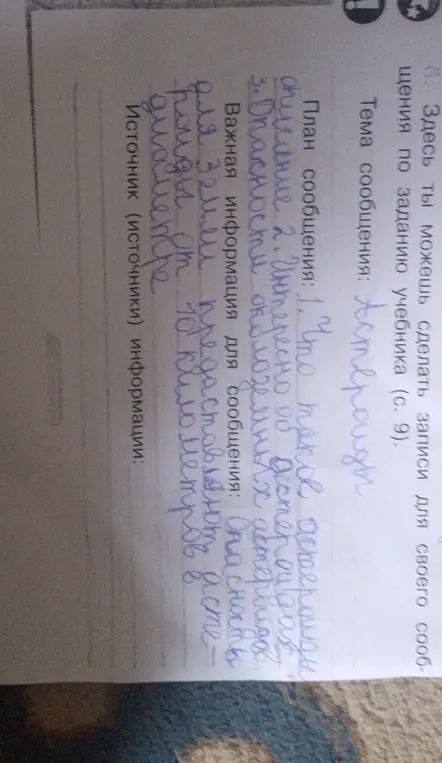 6. Здесь ты можешь сделать записи для своего сооб-
щения по заданию учебника (с. 9).
Тема сообщения: Астероиды
План сообщения: 1. Что такое астероиды
2. Интересно об астероидах.
3. Опасности околоземных астероидов
Важная информация для сообщения: Опасность
для Земли предоставляют асте-
роиды от 10 километров в
диаметре
Источник (источники) информации: